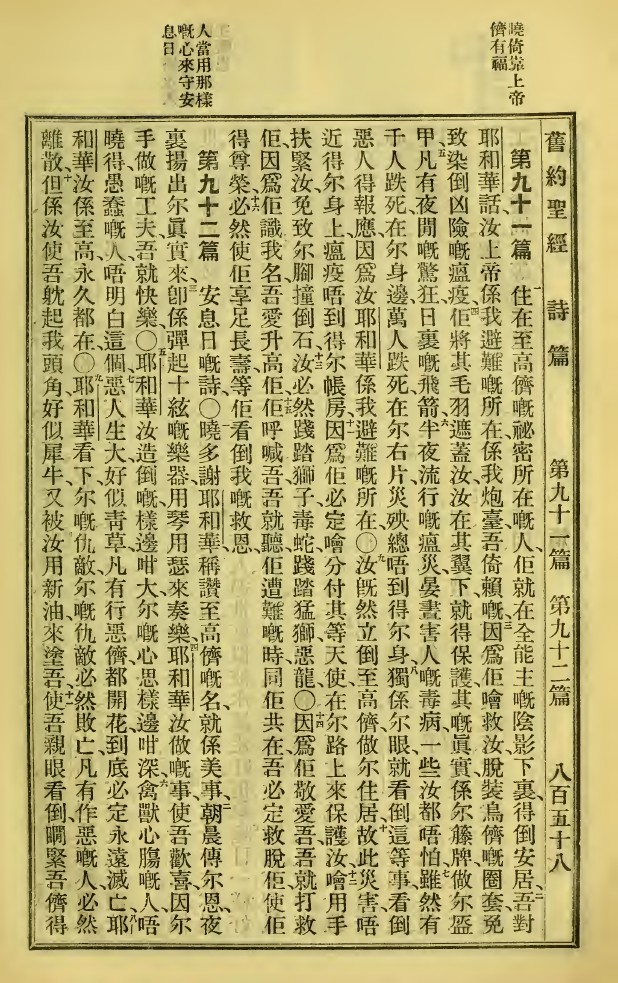 曉倚靠上帝
儕有福
人當用那樣
嘅心來守安
息日
舊約聖經 詩篇 第九十一篇 第九十二篇 八百五十八
第九十一篇 一住在至高儕嘅祕密所在嘅人、佢就在全能主嘅陰影下裏、得倒安居、二吾對
耶和華話汝上帝係我避難嘅所在係我炮臺吾倚賴嘅、三因爲佢噲救汝脫裝鳥儕嘅圈套免
致染倒凶險嘅瘟疫、四佢將其毛羽遮蓋汝汝在其翼下、就得保護其嘅眞實係尔籐牌做尔盔
甲、五凡有夜間嘅驚狂、日裏嘅飛箭、六半夜流行嘅瘟災、晏晝害人嘅毒病、一些汝都唔怕、七雖然有
千人跌死在尔身邊、萬人跌死在尔右片、災殃總唔到得尔身、八獨係尔眼就看倒這等事、看倒
惡人得報應、九因爲汝耶和華係我避難嘅所在〇汝旣然立倒至高儕做尔住居、十故此災害唔
近得尔身上瘟疫唔到得尔帳房、十一因爲佢必定噲分付其等天使在尔路上來保護汝、十二噲用手
扶緊汝、免致尔腳撞倒石、十三汝必然踐踏獅子毒蛇、踐踏猛獅惡龍〇十四因爲佢敬愛吾、吾就打救
佢、因爲佢識我名、吾愛升高佢、十五佢呼喊吾、吾就聽佢、遭難嘅時、同佢共在、吾必定救脫佢、使佢
得尊榮、十六必然使佢享足長壽等佢看倒我嘅救恩、
第九十二篇 安息日嘅詩〇一曉多謝耶和華稱讚至高儕嘅名、就係美事、二朝晨傳尔恩、夜
裏揚出尔眞實來、三卽係彈起十絃嘅樂器、用琴用瑟來奏樂、四耶和華汝做嘅事、使吾歡喜、因尔
手做嘅工夫、吾就快樂〇五耶和華汝造倒嘅樣邊咁大、尔嘅心思樣邊咁深、六禽獸心腸嘅人、唔
曉得、愚蠢嘅人、唔明白這個、七惡人生大、好似靑草、凡有行惡儕都開花、到底必定永遠滅亡、八耶
和華汝係至高、永久都在〇九耶和華看下尔嘅仇敵、尔嘅仇敵、必然敗亡、凡有作惡嘅人、必然
離散、十但係汝使吾䟴起我頭角、好似犀牛、又被汝用新油來塗吾、十一使吾親眼看倒瞷緊吾儕得